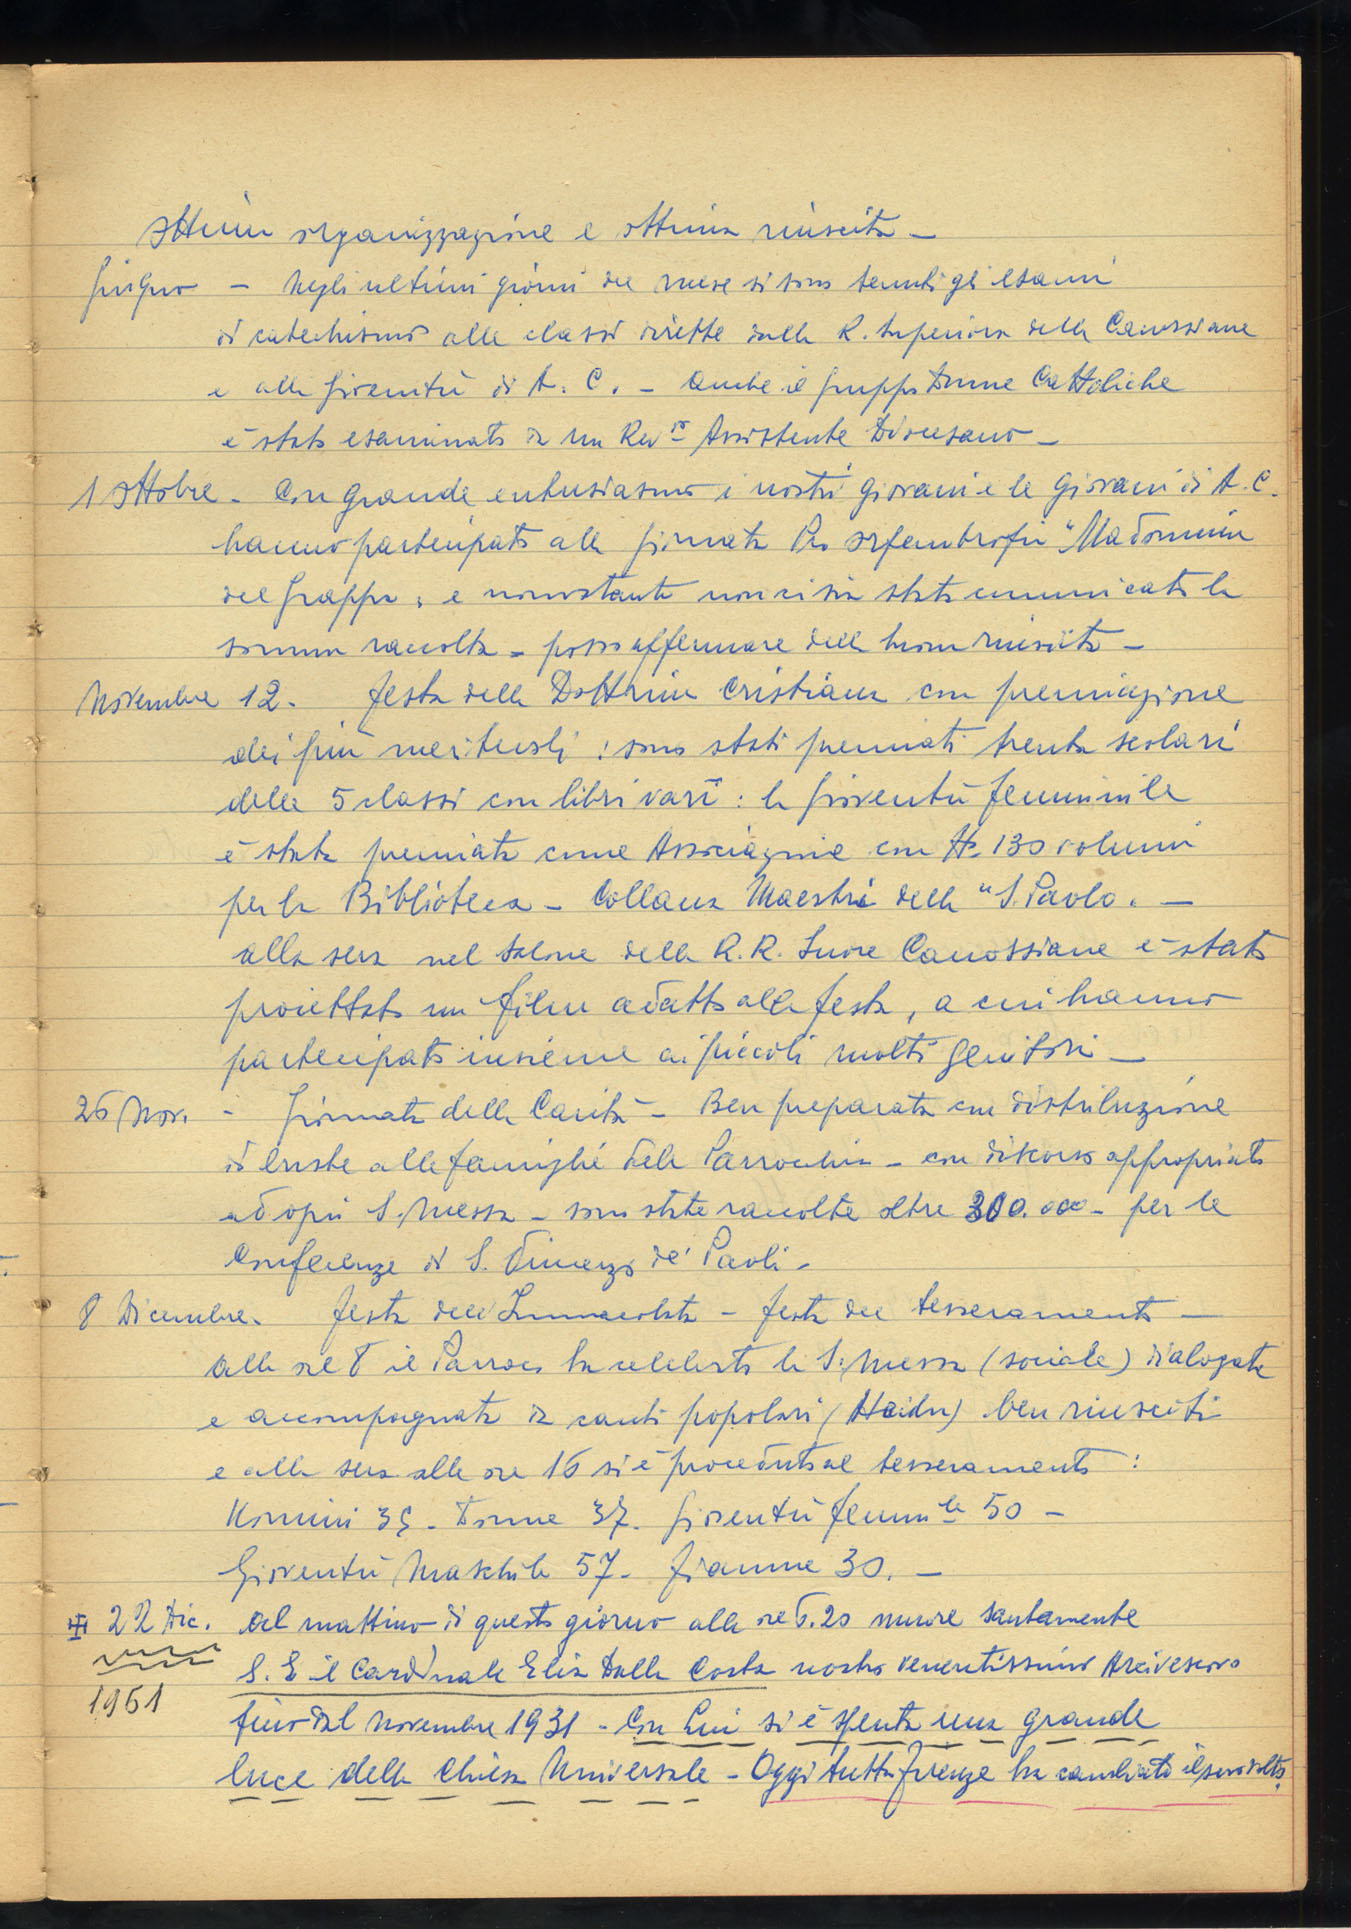 ottima organizzazione e ottima riuscita –
Giugno – Negli ultimi giorni del mese si sono tenuti gli esami
di catechismo alle classi dirette dalla R. Superiora delle Canossiane
e alla Gioventù di A. C. – Anche il gruppo Donne Cattoliche
è stato esaminato da un Rev.mo Assistente Diocesano –
1 Ottobre – Con grande entusiasmo i nostri giovani e le Giovani di A. C.
hanno partecipato alla giornata Pro orfanotrofio "Madonnina
del Grappa" e nonostante non ci sia stata comunicata la
somma raccolta – posso affermare della buona riuscita –
Novembre 12. festa della Dottrina Cristiana con premiazione
dei più meritevoli : sono stati premiati trenta scolari
delle 5 classi con libri vari : la gioventù femminile
è stata premiata come Associazione con N. 130 volumi
per la Biblioteca – Collana Maestri della "S. Paolo. –
alla sera nel salone delle R. R. Suore Canossiane è stato
proiettato un film adatto alla festa, a cui hanno
partecipato insieme ai piccoli molti genitori –
26 Nov. – Giornata della Carità – Ben preparata con distribuzione
di buste alle famiglie della Parrocchia – con discorso appropriato
ad ogni S. Messa – sono state raccolte oltre 300.000 – per le
Conferenze di S. Vincenzo de' Paoli –
8 Dicembre. festa dell'Immacolata – festa del tesseramento –
alle ore 8 il Parroco ha celebrato la S. Messa (sociale) dialogata
e accompagnata da canti popolari (Haidn) ben riusciti
e alla sera alle ore 16 si è proceduto al tesseramento :
Uomini 35 – Donne 37. Gioventù femm.le 50 –
Gioventù Maschile 57 – fiamme 30. –
22 Dic. Al mattino di questo giorno alle ore 6.20 muore santamente
1961 S. E il Cardinale Elia Dalla Costa nostro veneratissimo Arcivescovo
fino dal novembre 1931 – Con Lui si è spenta una grande
luce della Chiesa Universale – Oggi tutta Firenze ha cambiato il suo volto.